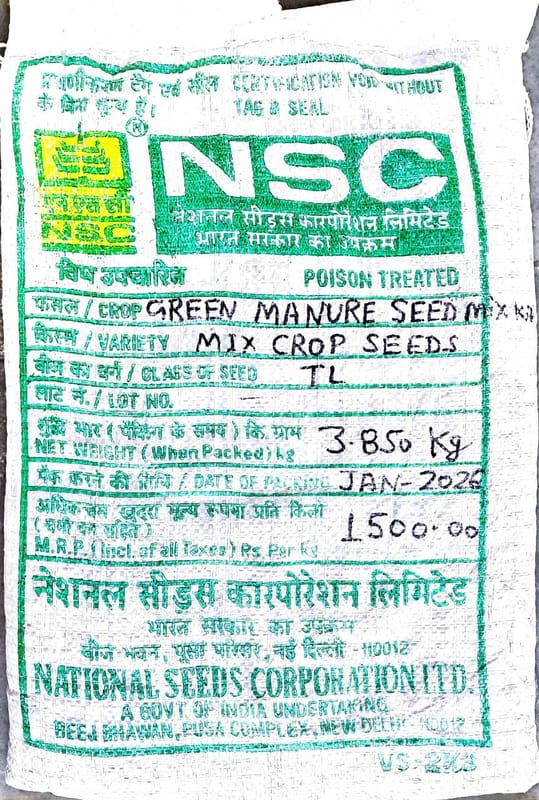 प्रमाणीकरण टैग एवं सील CERTIFICATION VOID WITHOUT
के बिना शून्य है। TAG & SEAL
R
NSC
एन एस सी
NSC
नेशनल सीड्स कारपोरेशन लिमिटेड
भारत सरकार का उपक्रम
विष उपचारित POISON TREATED
फसल / CROP GREEN MANURE SEED MIX KIT
किस्म / VARIETY MIX CROP SEEDS
बीज का वर्ग / CLASS OF SEED TL
लाट नं. / LOT NO. —
शुद्ध भार (पैकिंग के समय) कि. ग्राम
NET WEIGHT (When Packed) kg 3.850 Kg
पैक करने की तिथि / DATE OF PACKING JAN-2026
अधिकतम खुदरा मूल्य रूपया प्रति किलो
(सभी कर सहित) 1500.00
M.R.P. (Incl. of all Taxes) Rs. Per kg
नेशनल सीड्स कारपोरेशन लिमिटेड
भारत सरकार का उपक्रम
बीज भवन, पूसा परिसर, नई दिल्ली -110012
NATIONAL SEEDS CORPORATION LTD.
A GOVT OF INDIA UNDERTAKING
BEEJ BHAWAN, PUSA COMPLEX, NEW DELHI - 110012